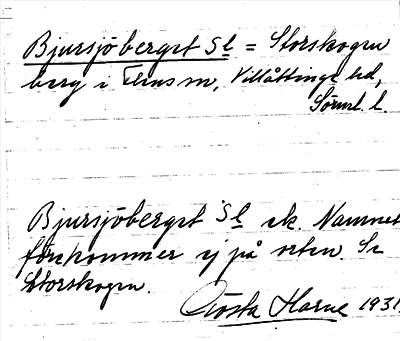 Bjursjöberget Sl = Storskogen
berg i Flens sn, Villåttinge hd,
Sörml. l.
Bjursjöberget Sl sk. Namnet
förekommer ej på orten. Se
Storskogen.
Gösta Harne 1931